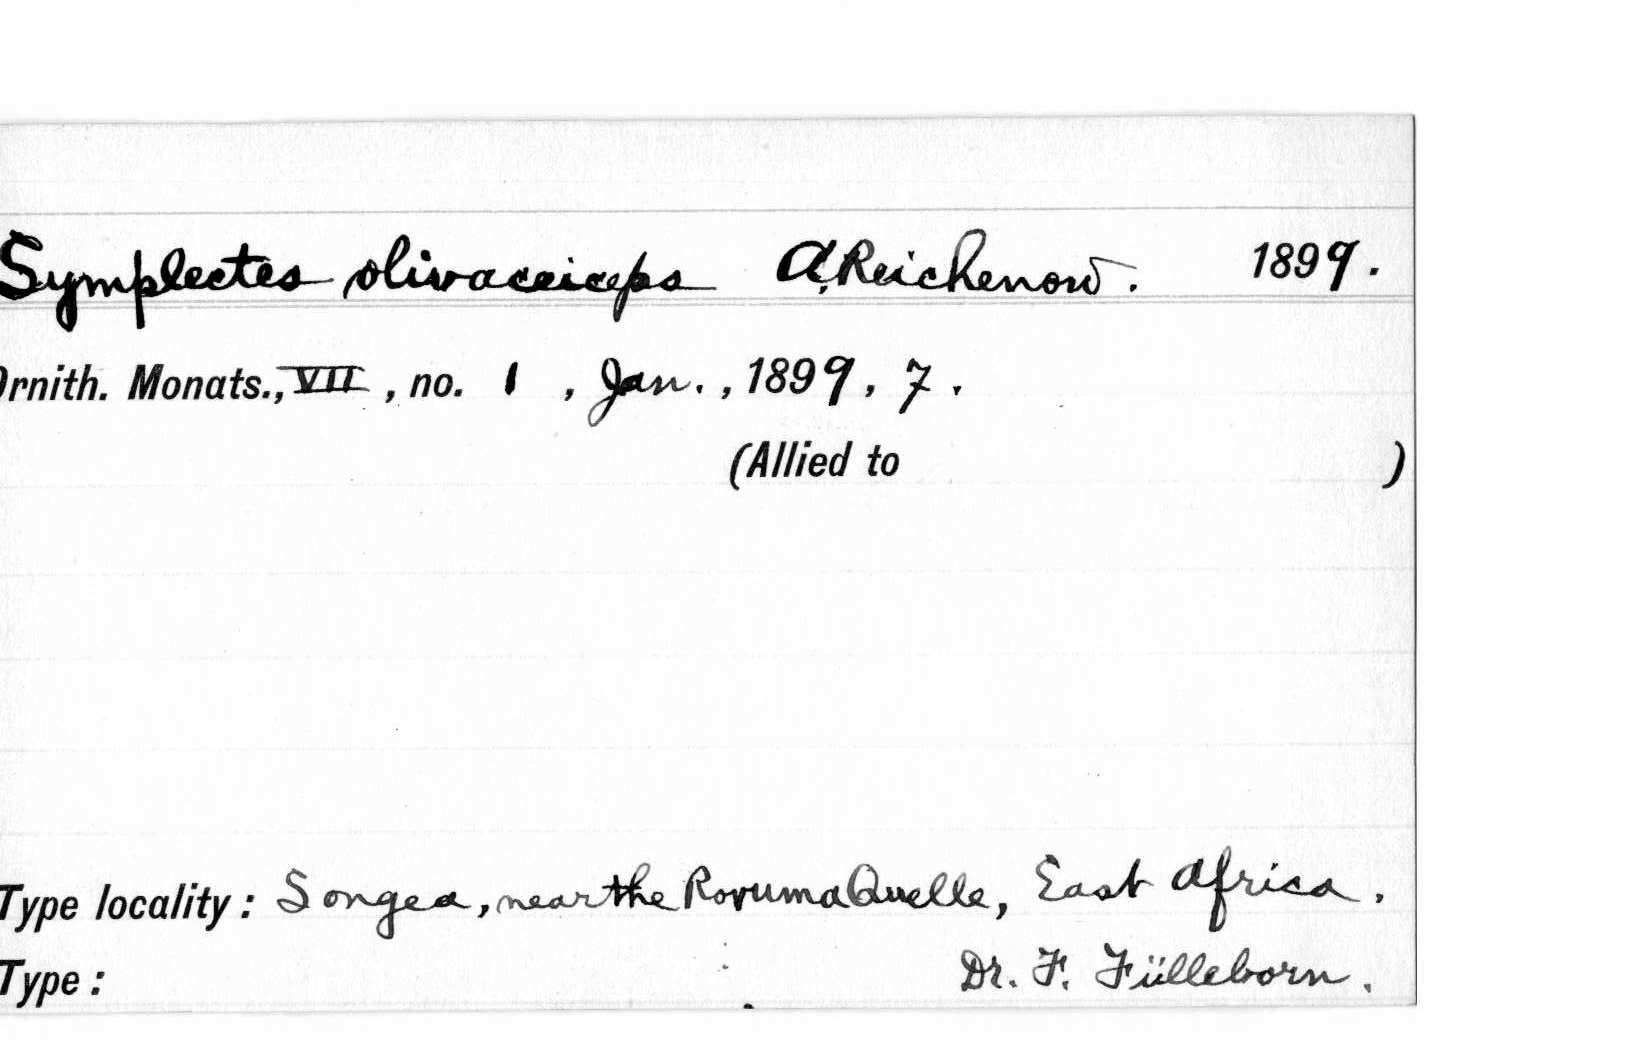 Symplectes olivaceiceps A. Reichenow. 1899.
Ornith. Monats., VII, no. 1, Jan., 1899, 7.
(Allied to )
Type locality: Songea, near the Rovuma Quelle, East Africa.
Type: Dr. F. Fülleborn.